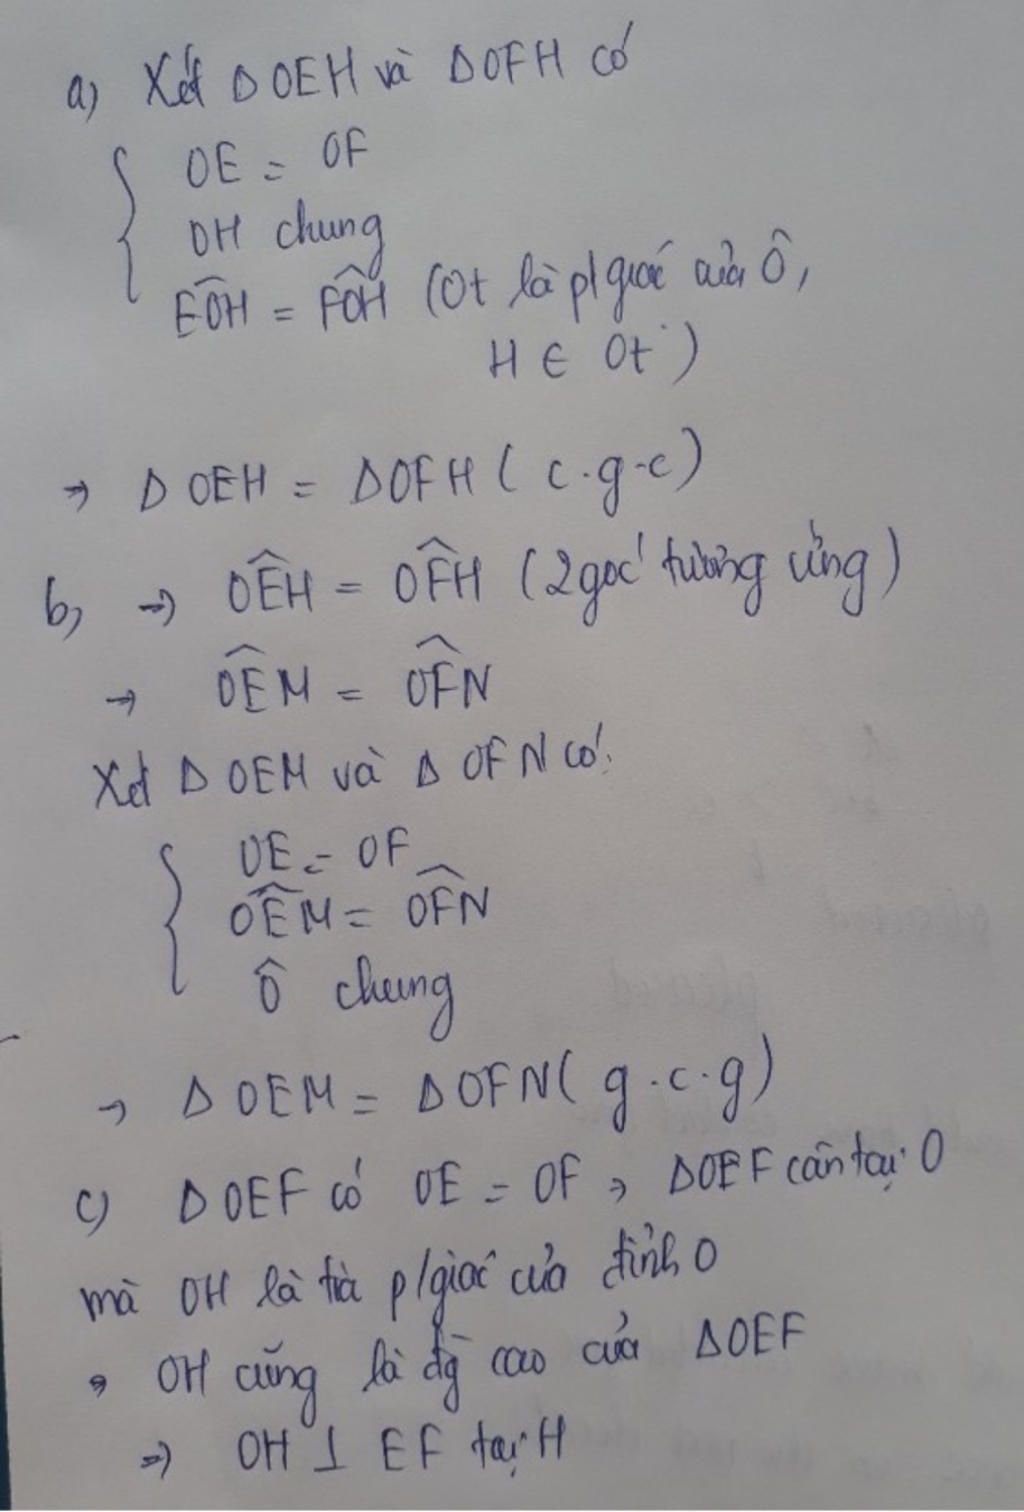 a) Xét Δ OEH và Δ OFH có
OE = OF
OH chung
EÔH = FÔH (Ot là p/giác của Ô,
H ∈ Ot)
→ Δ OEH = Δ OFH ( c.g.c)
b, → OÊH = OF̂H (2 góc tương ứng)
→ OÊM = OF̂N
Xét Δ OEM và Δ OFN có:
OE = OF
OÊM = OF̂N
Ô chung
→ Δ OEM = Δ OFN ( g.c.g)
c) Δ OEF có OE = OF → Δ OEF cân tại O
mà OH là tia p/giác của đỉnh O
→ OH cũng là đg cao của Δ OEF
⇒ OH ⊥ EF tại H